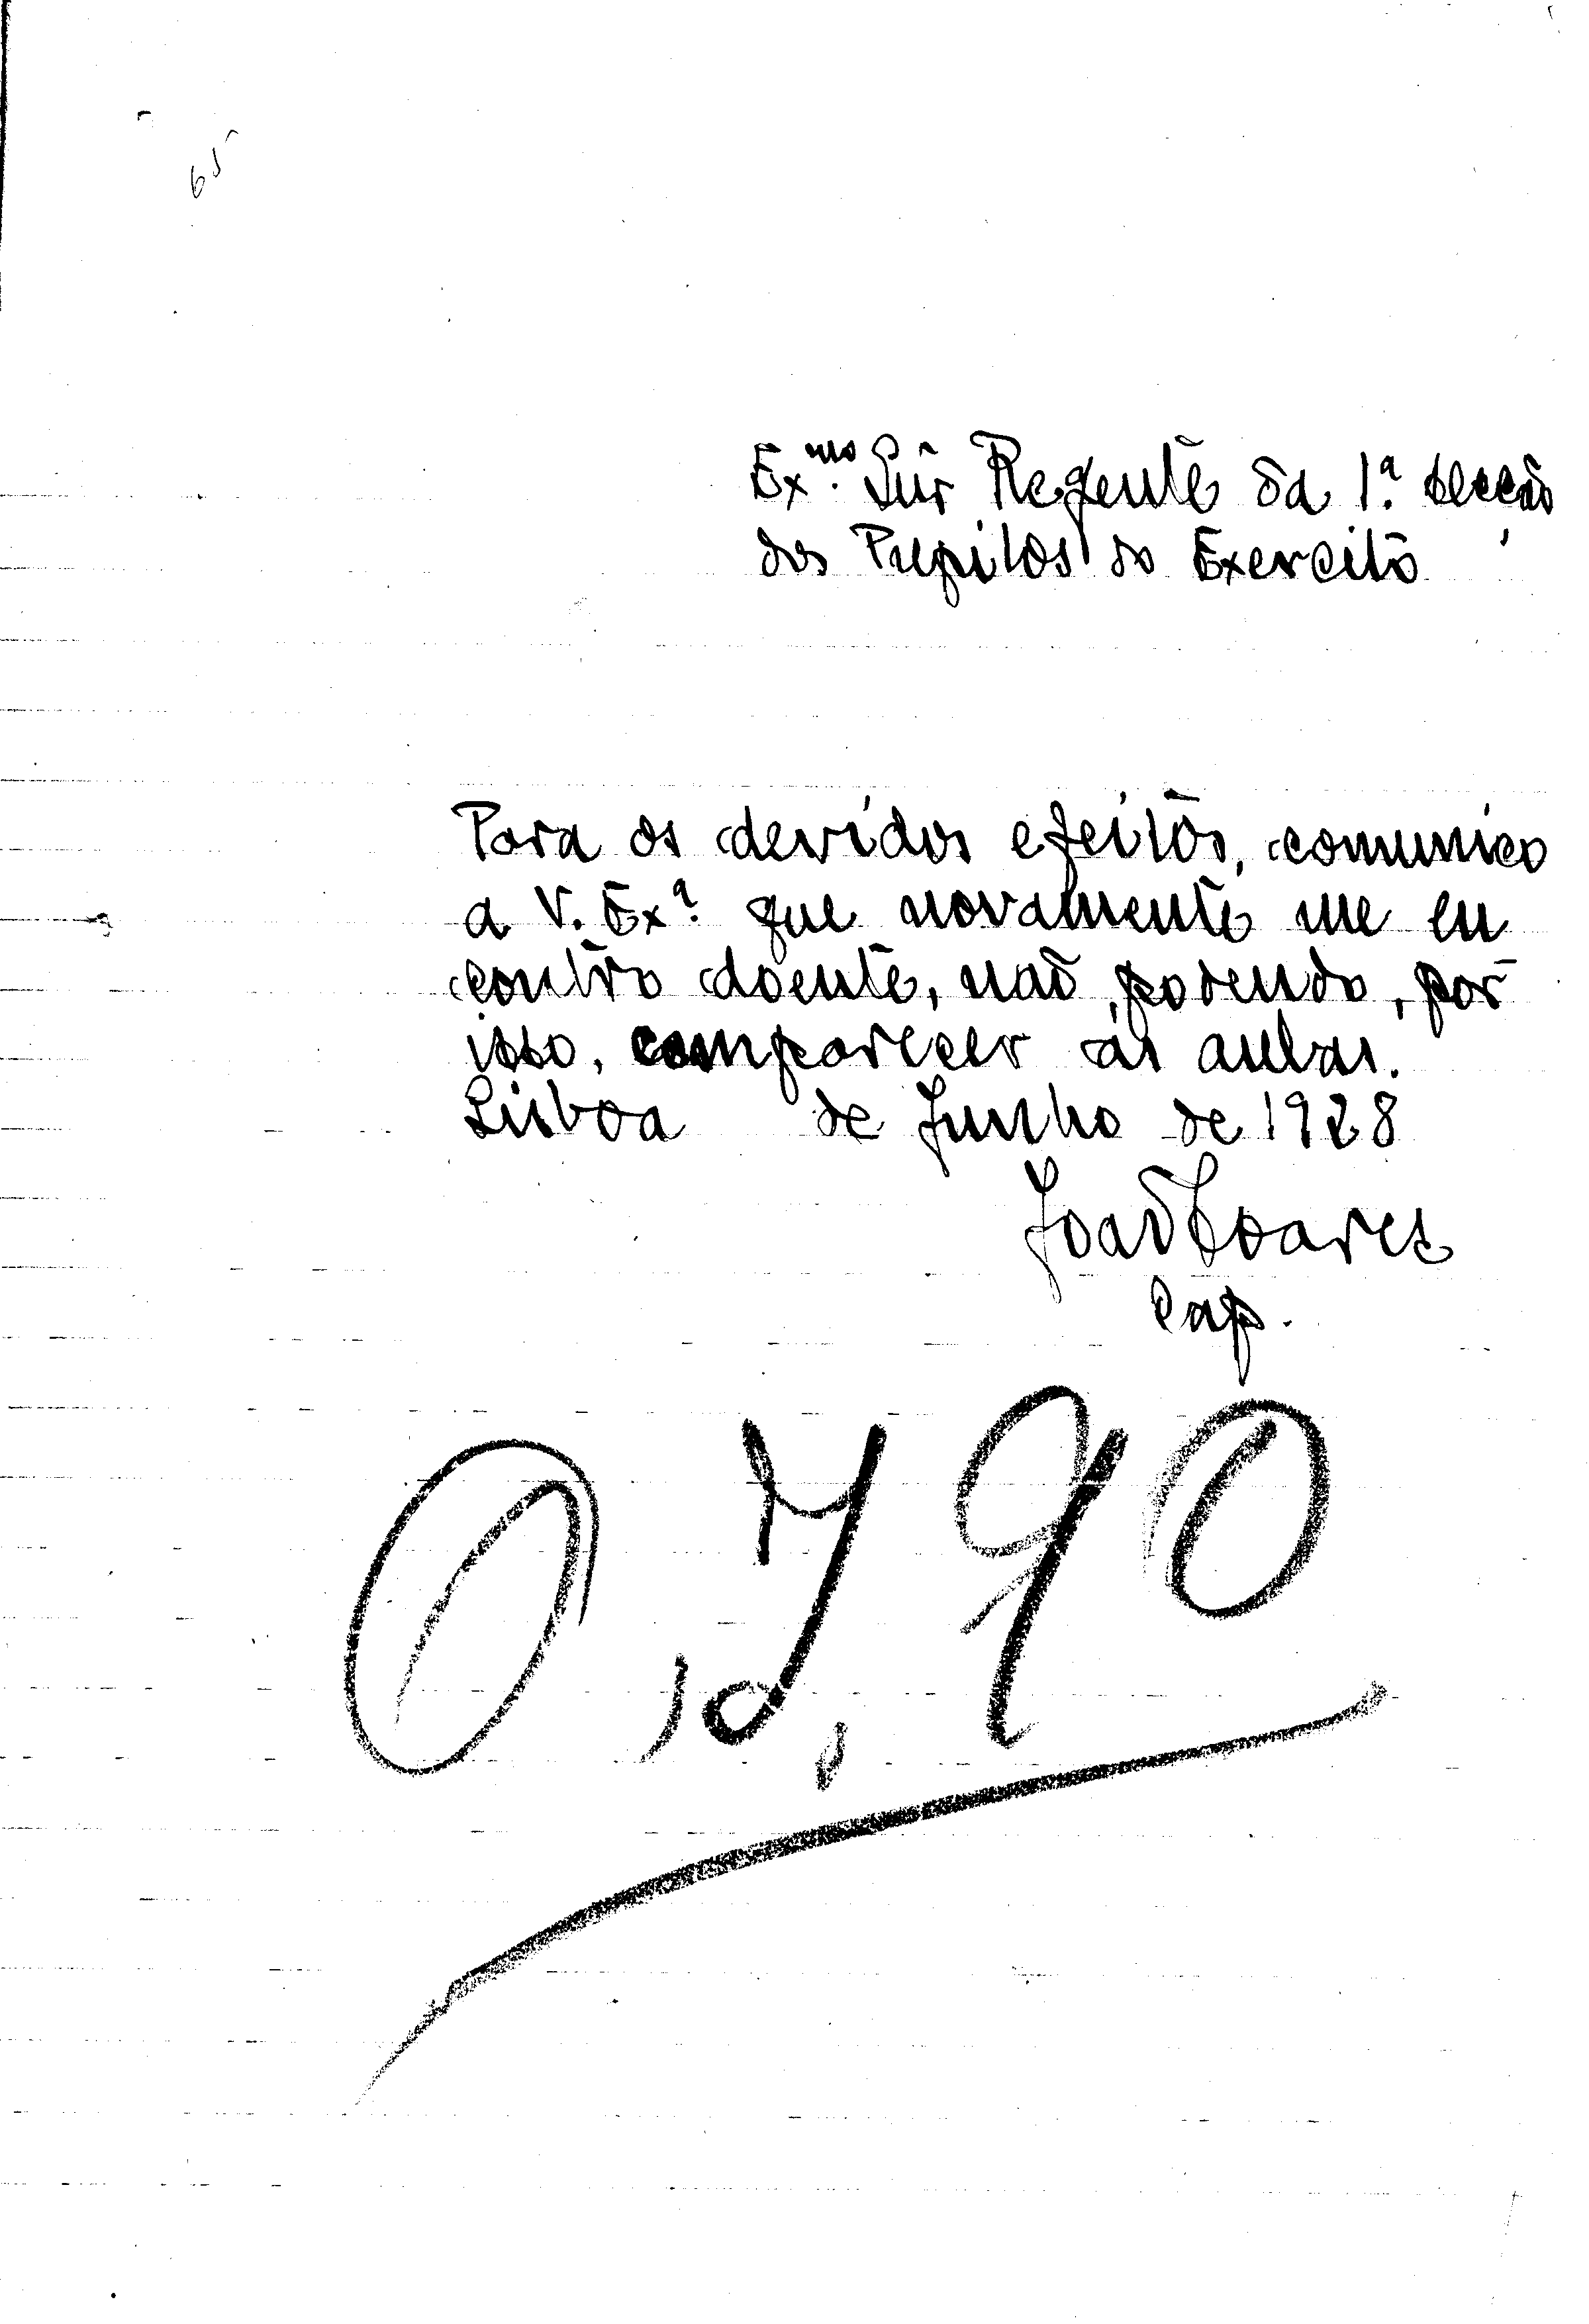 65
Ex.mo Snr Regente da 1.ª Secção
dos Pupilos do Exercito
Para os devidos efeitos, comunico
a V. Ex.ª que novamente me en
contro doente, não podendo, por
isso, comparecer ás aulas.
Lisboa de Junho de 1928
João Soares
Cap.
O. 90